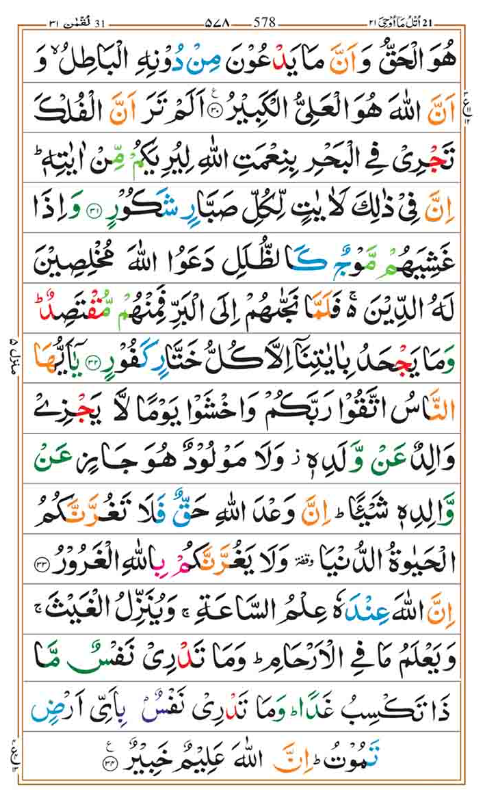 21 اُتْلُ مَآ اُوْحِیَ ٢١ 578 ٥٧٨ 31 لُقْمٰن ٣١
هُوَ الْحَقُّ وَ اَنَّ مَا یَدْعُوْنَ مِنْ دُوْنِهِ الْبَاطِلُ ۙ وَ
اَنَّ اللّٰهَ هُوَ الْعَلِیُّ الْكَبِیْرُ ﴿٣٠﴾ اَلَمْ تَرَ اَنَّ الْفُلْكَ
تَجْرِیْ فِی الْبَحْرِ بِنِعْمَتِ اللّٰهِ لِیُرِیَكُمْ مِّنْ اٰیٰتِهٖ ؕ
اِنَّ فِیْ ذٰلِكَ لَاٰیٰتٍ لِّكُلِّ صَبَّارٍ شَكُوْرٍ ﴿٣١﴾ وَ اِذَا
غَشِیَهُمْ مَّوْجٌ كَالظُّلَلِ دَعَوُا اللّٰهَ مُخْلِصِیْنَ
لَهُ الدِّیْنَ ۚ۬ فَلَمَّا نَجّٰىهُمْ اِلَی الْبَرِّ فَمِنْهُمْ مُّقْتَصِدٌ ؕ
وَ مَا یَجْحَدُ بِاٰیٰتِنَاۤ اِلَّا كُلُّ خَتَّارٍ كَفُوْرٍ ﴿٣٢﴾ یٰۤاَیُّهَا
النَّاسُ اتَّقُوْا رَبَّكُمْ وَ اخْشَوْا یَوْمًا لَّا یَجْزِیْ
وَالِدٌ عَنْ وَّلَدِهٖ ؗ وَ لَا مَوْلُوْدٌ هُوَ جَازٍ عَنْ
وَّالِدِهٖ شَیْـًٔا ؕ اِنَّ وَعْدَ اللّٰهِ حَقٌّ فَلَا تَغُرَّنَّكُمُ
الْحَیٰوةُ الدُّنْیَا ۥ وقفة وَ لَا یَغُرَّنَّكُمْ بِاللّٰهِ الْغَرُوْرُ ﴿٣٣﴾
اِنَّ اللّٰهَ عِنْدَهٗ عِلْمُ السَّاعَةِ ۚ وَ یُنَزِّلُ الْغَیْثَ ۚ
وَ یَعْلَمُ مَا فِی الْاَرْحَامِ ؕ وَ مَا تَدْرِیْ نَفْسٌ مَّا
ذَا تَكْسِبُ غَدًا ؕ وَ مَا تَدْرِیْ نَفْسٌۢ بِاَیِّ اَرْضٍ
تَمُوْتُ ؕ اِنَّ اللّٰهَ عَلِیْمٌ خَبِیْرٌ ﴿٣٤﴾
منزل ٥